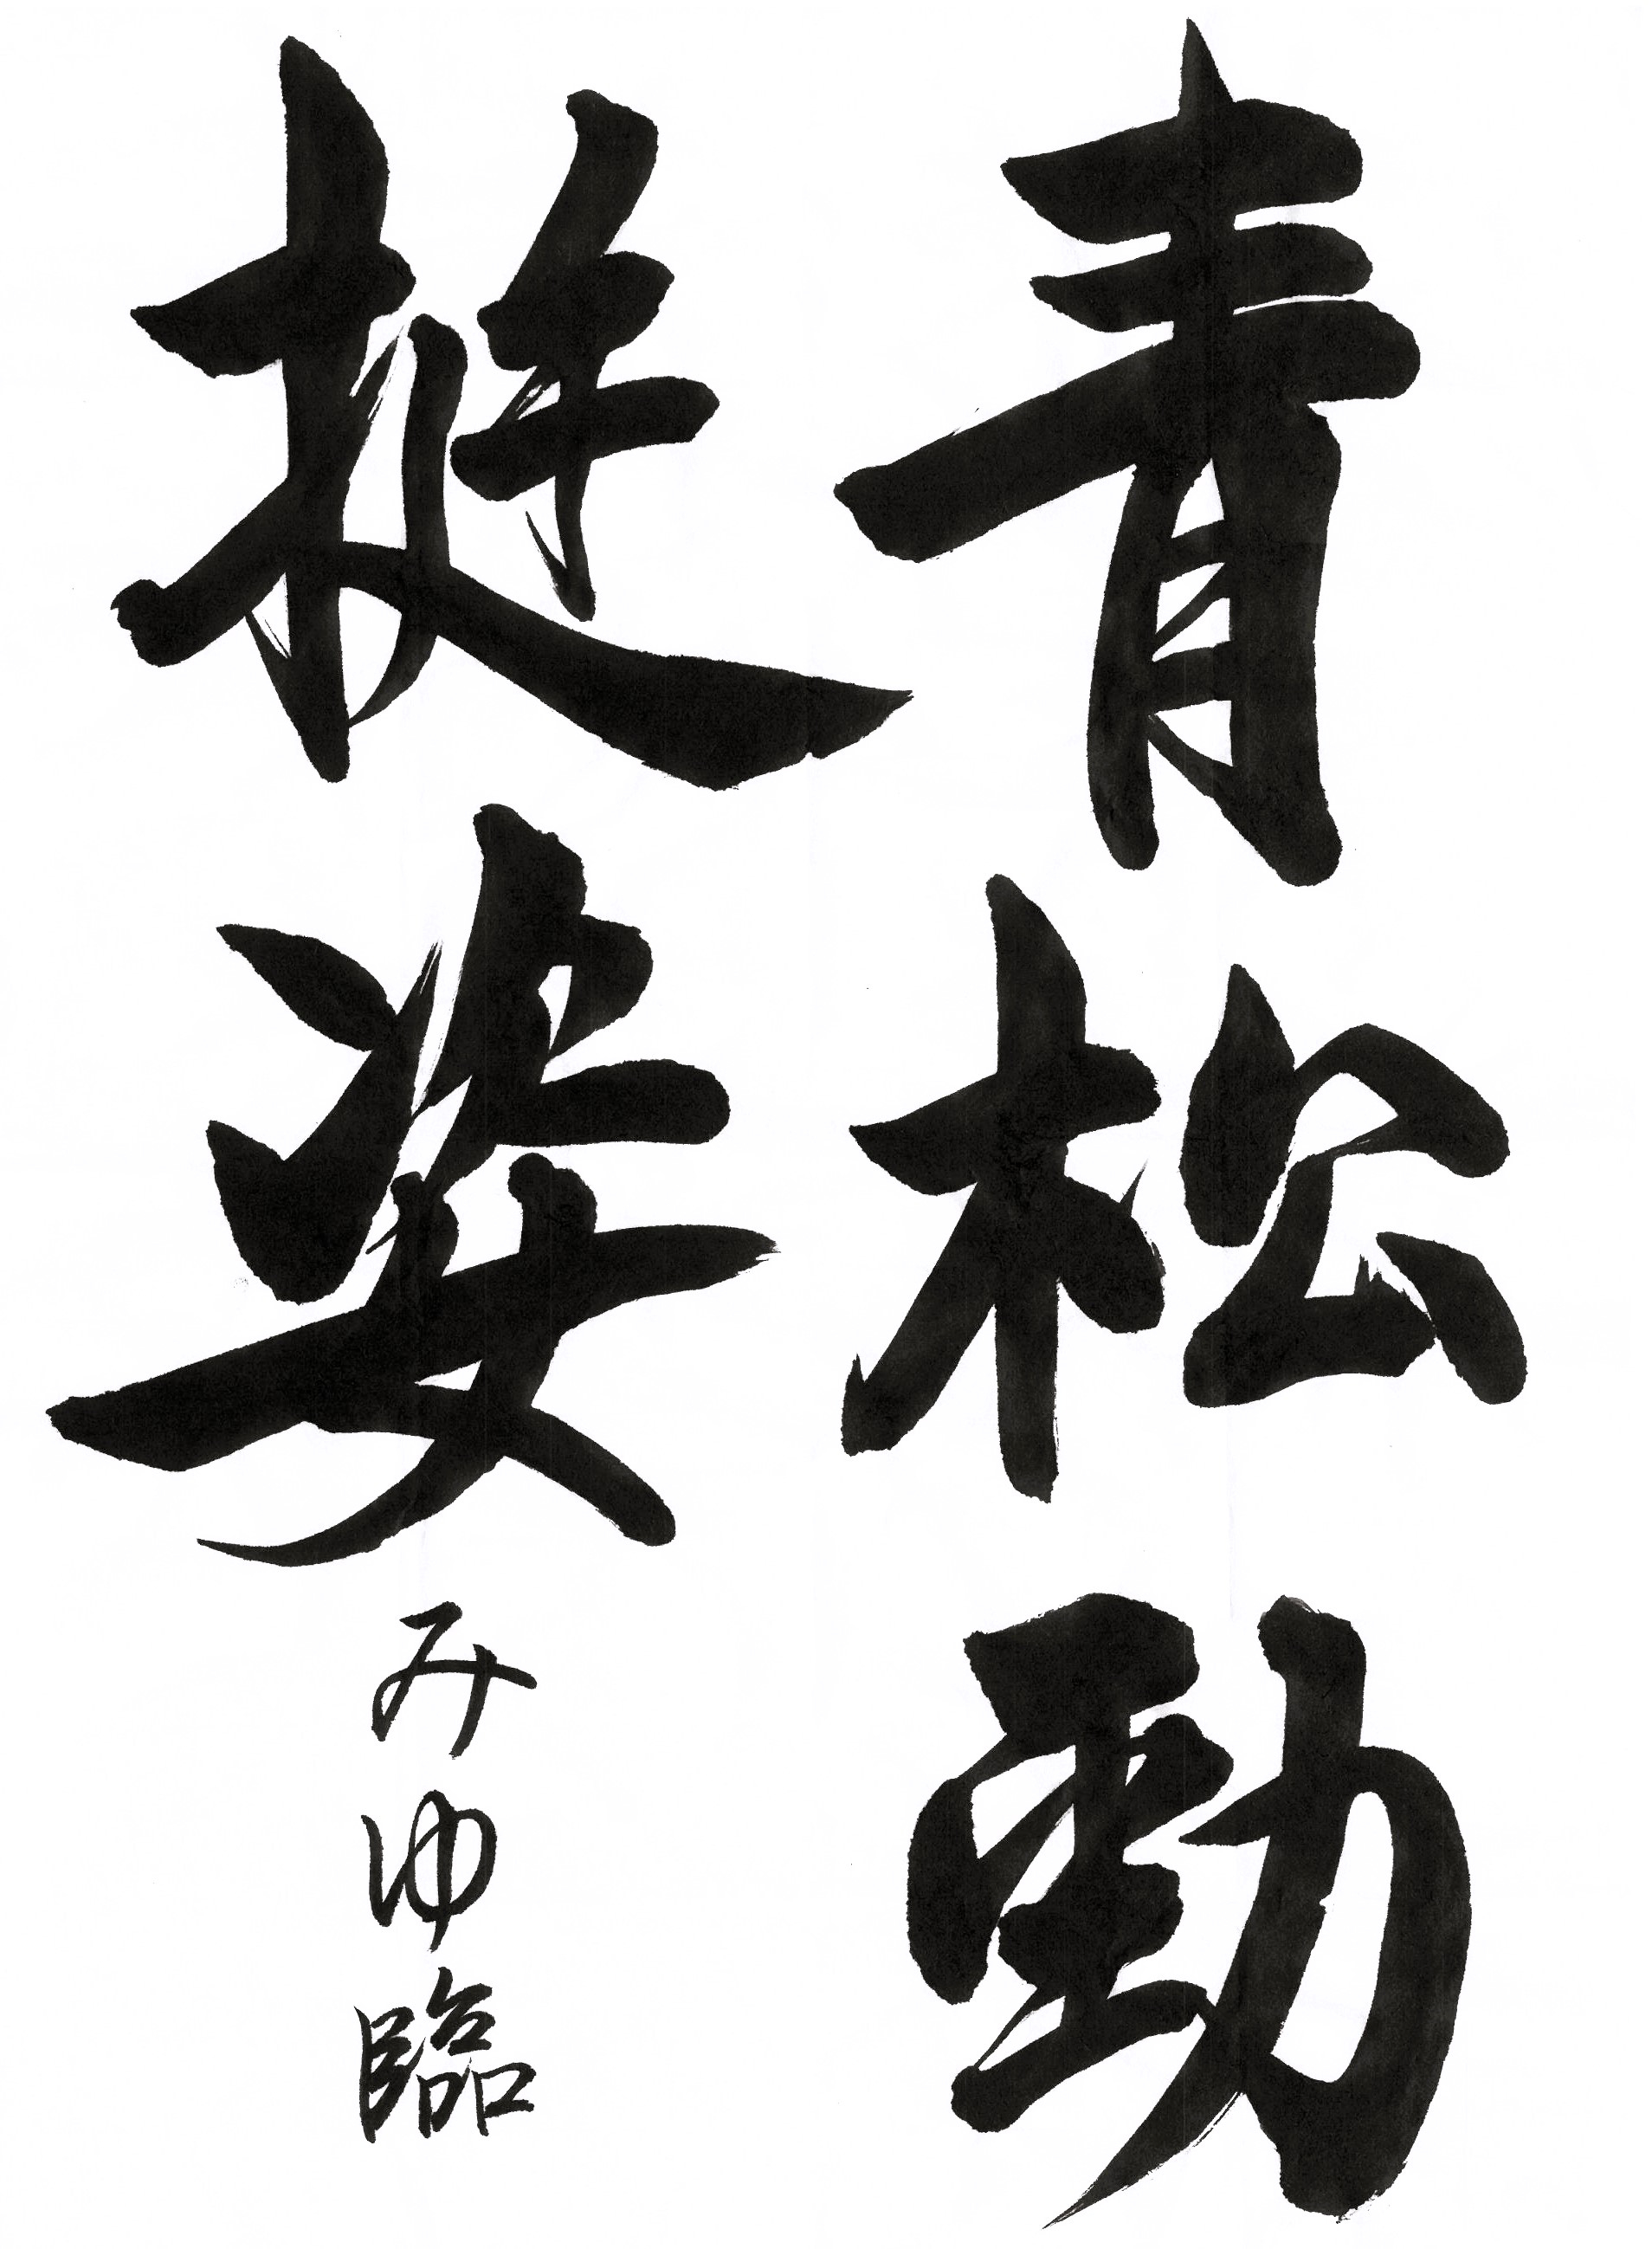 青松勁
挺姿みゆ臨